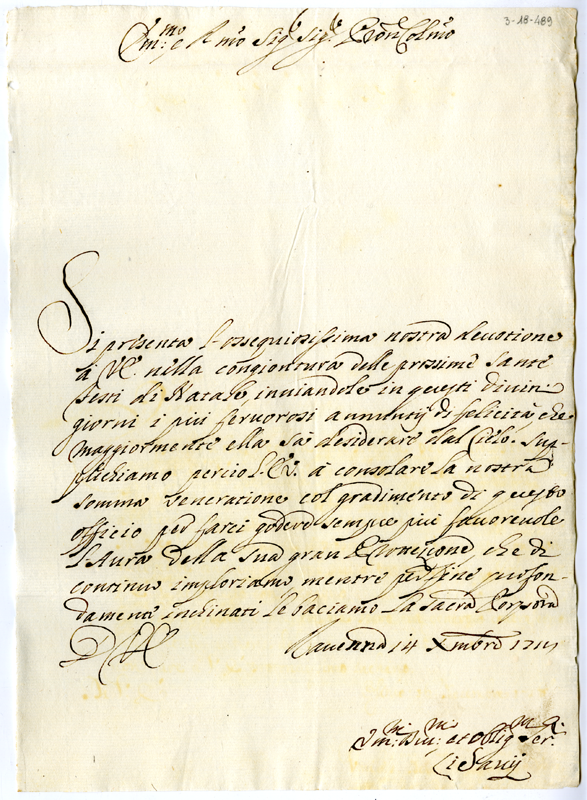 3-18-489
Em:mo e R:mo Sig:e Sig:e Pron Colmo
Si presenta l'ossequiosissima nostra devotione
à VE nella congiontura delle prossime Sante
feste di Natale inviandole in questi divin
giorni i più fervorosi annuntij di felicità che
maggiormente ella sà desiderare dal Cielo. Sup-
plichiamo perciò l'E.V. à consolare la nostra
somma veneratione col gradimento di questo
officio per farci godere sempre più favorevole
l'Aura della sua gran Protettione che di
continuo imploriamo mentre per fine profon-
damente inchinati le baciamo la sacra Porpora
D VE Ravenna 14 Xmbre
et Oblig:mi Ser:
Li Savij